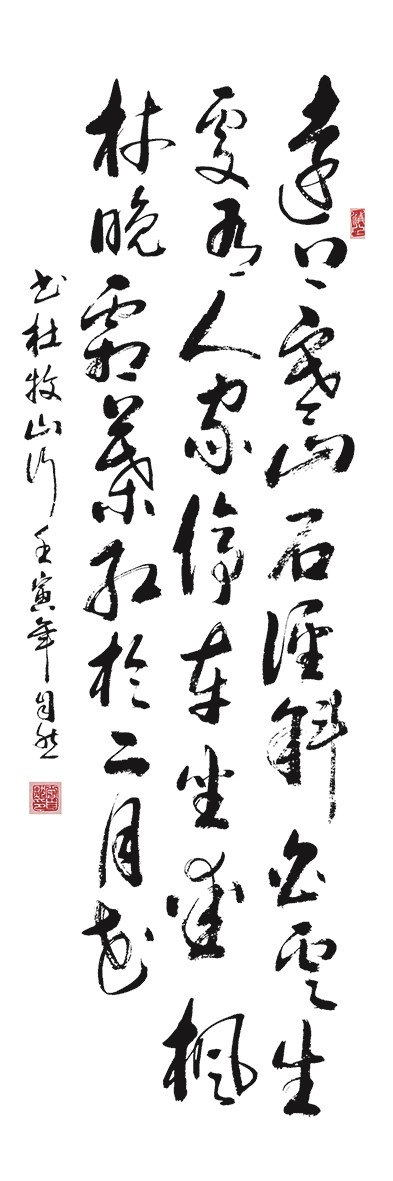 遠上寒山石徑斜白雲生
處有人家停車坐愛楓
林晚霜葉紅於二月花
书杜牧山行壬寅年自然